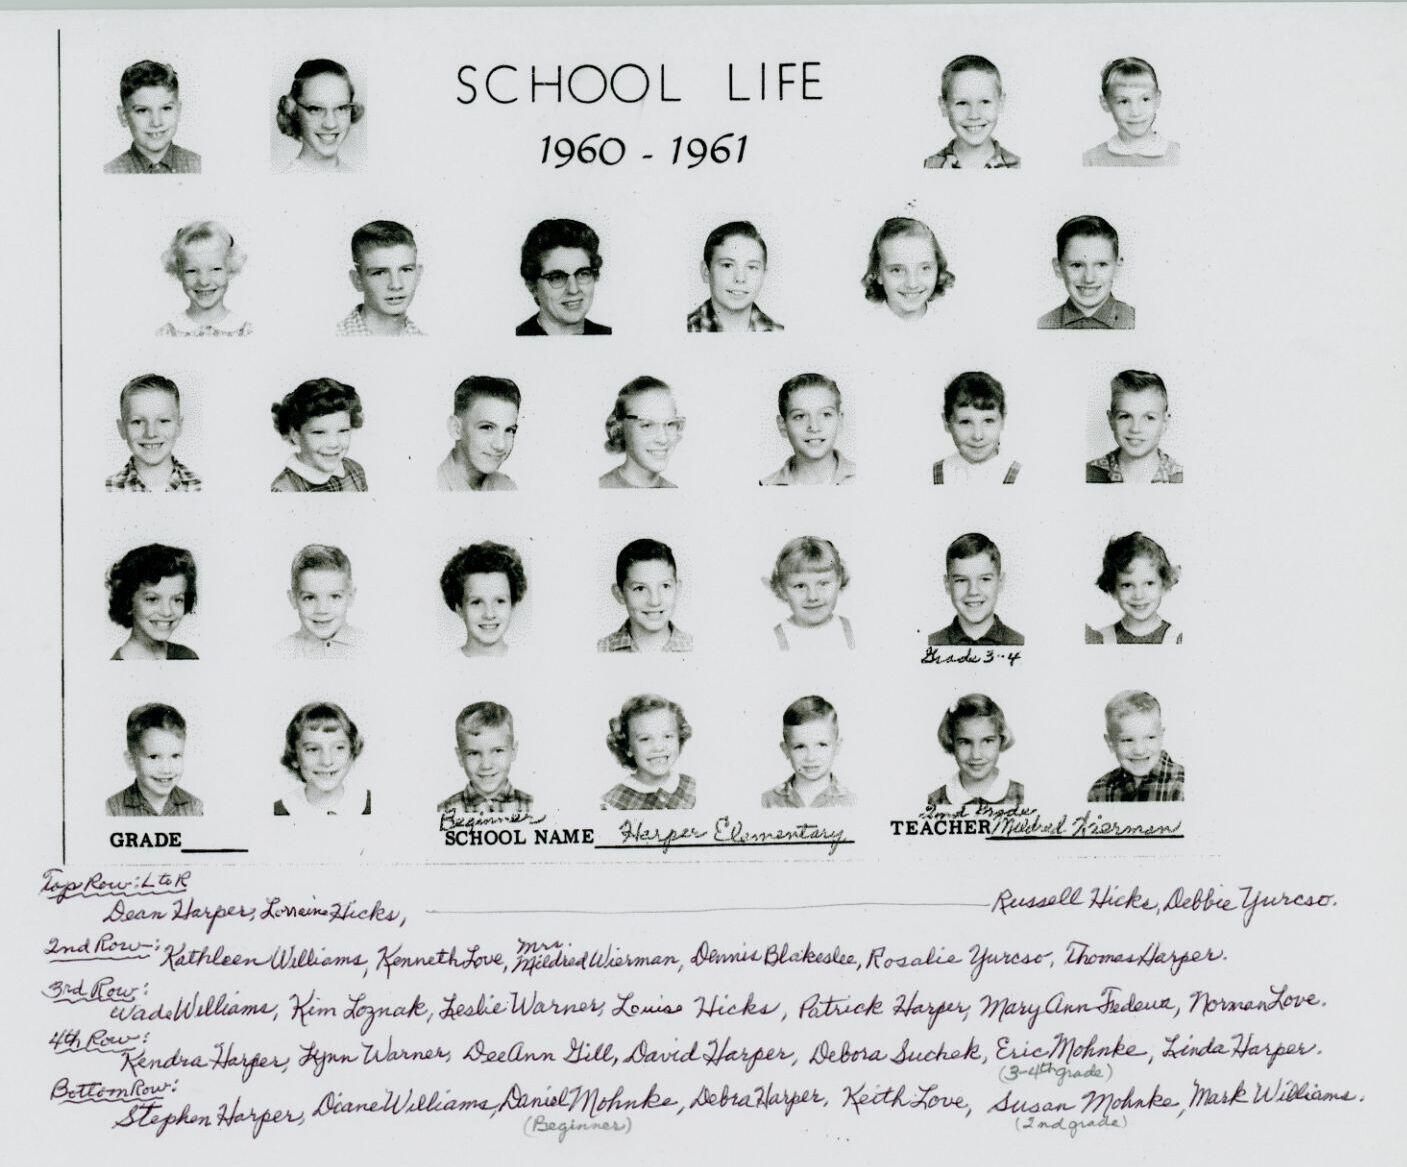 SCHOOL LIFE
1960 - 1961
Grade 3-4
Beginner
2nd Grade
GRADE
SCHOOL NAME Harper Elementary
TEACHER Mildred Wierman
Top Row: L to R
Dean Harper, Lorraine Hicks, Russell Hicks, Debbie Yurcso.
2nd Row: Kathleen Williams, Kenneth Love, Mrs. Mildred Wierman, Dennis Blakeslee, Rosalie Yurcso, Thomas Harper.
3rd Row:
Wade Williams, Kim Loznak, Leslie Warner, Louise Hicks, Patrick Harper, Mary Ann Fedewa, Norman Love.
4th Row:
Kendra Harper, Lynn Warner, DeeAnn Gill, David Harper, Debora Suchek, Eric Mohnke, Linda Harper.
(3-4th grade)
Bottom Row:
Stephen Harper, Diane Williams, Daniel Mohnke, Debra Harper, Keith Love, Susan Mohnke, Mark Williams.
(Beginner) (2nd grade)